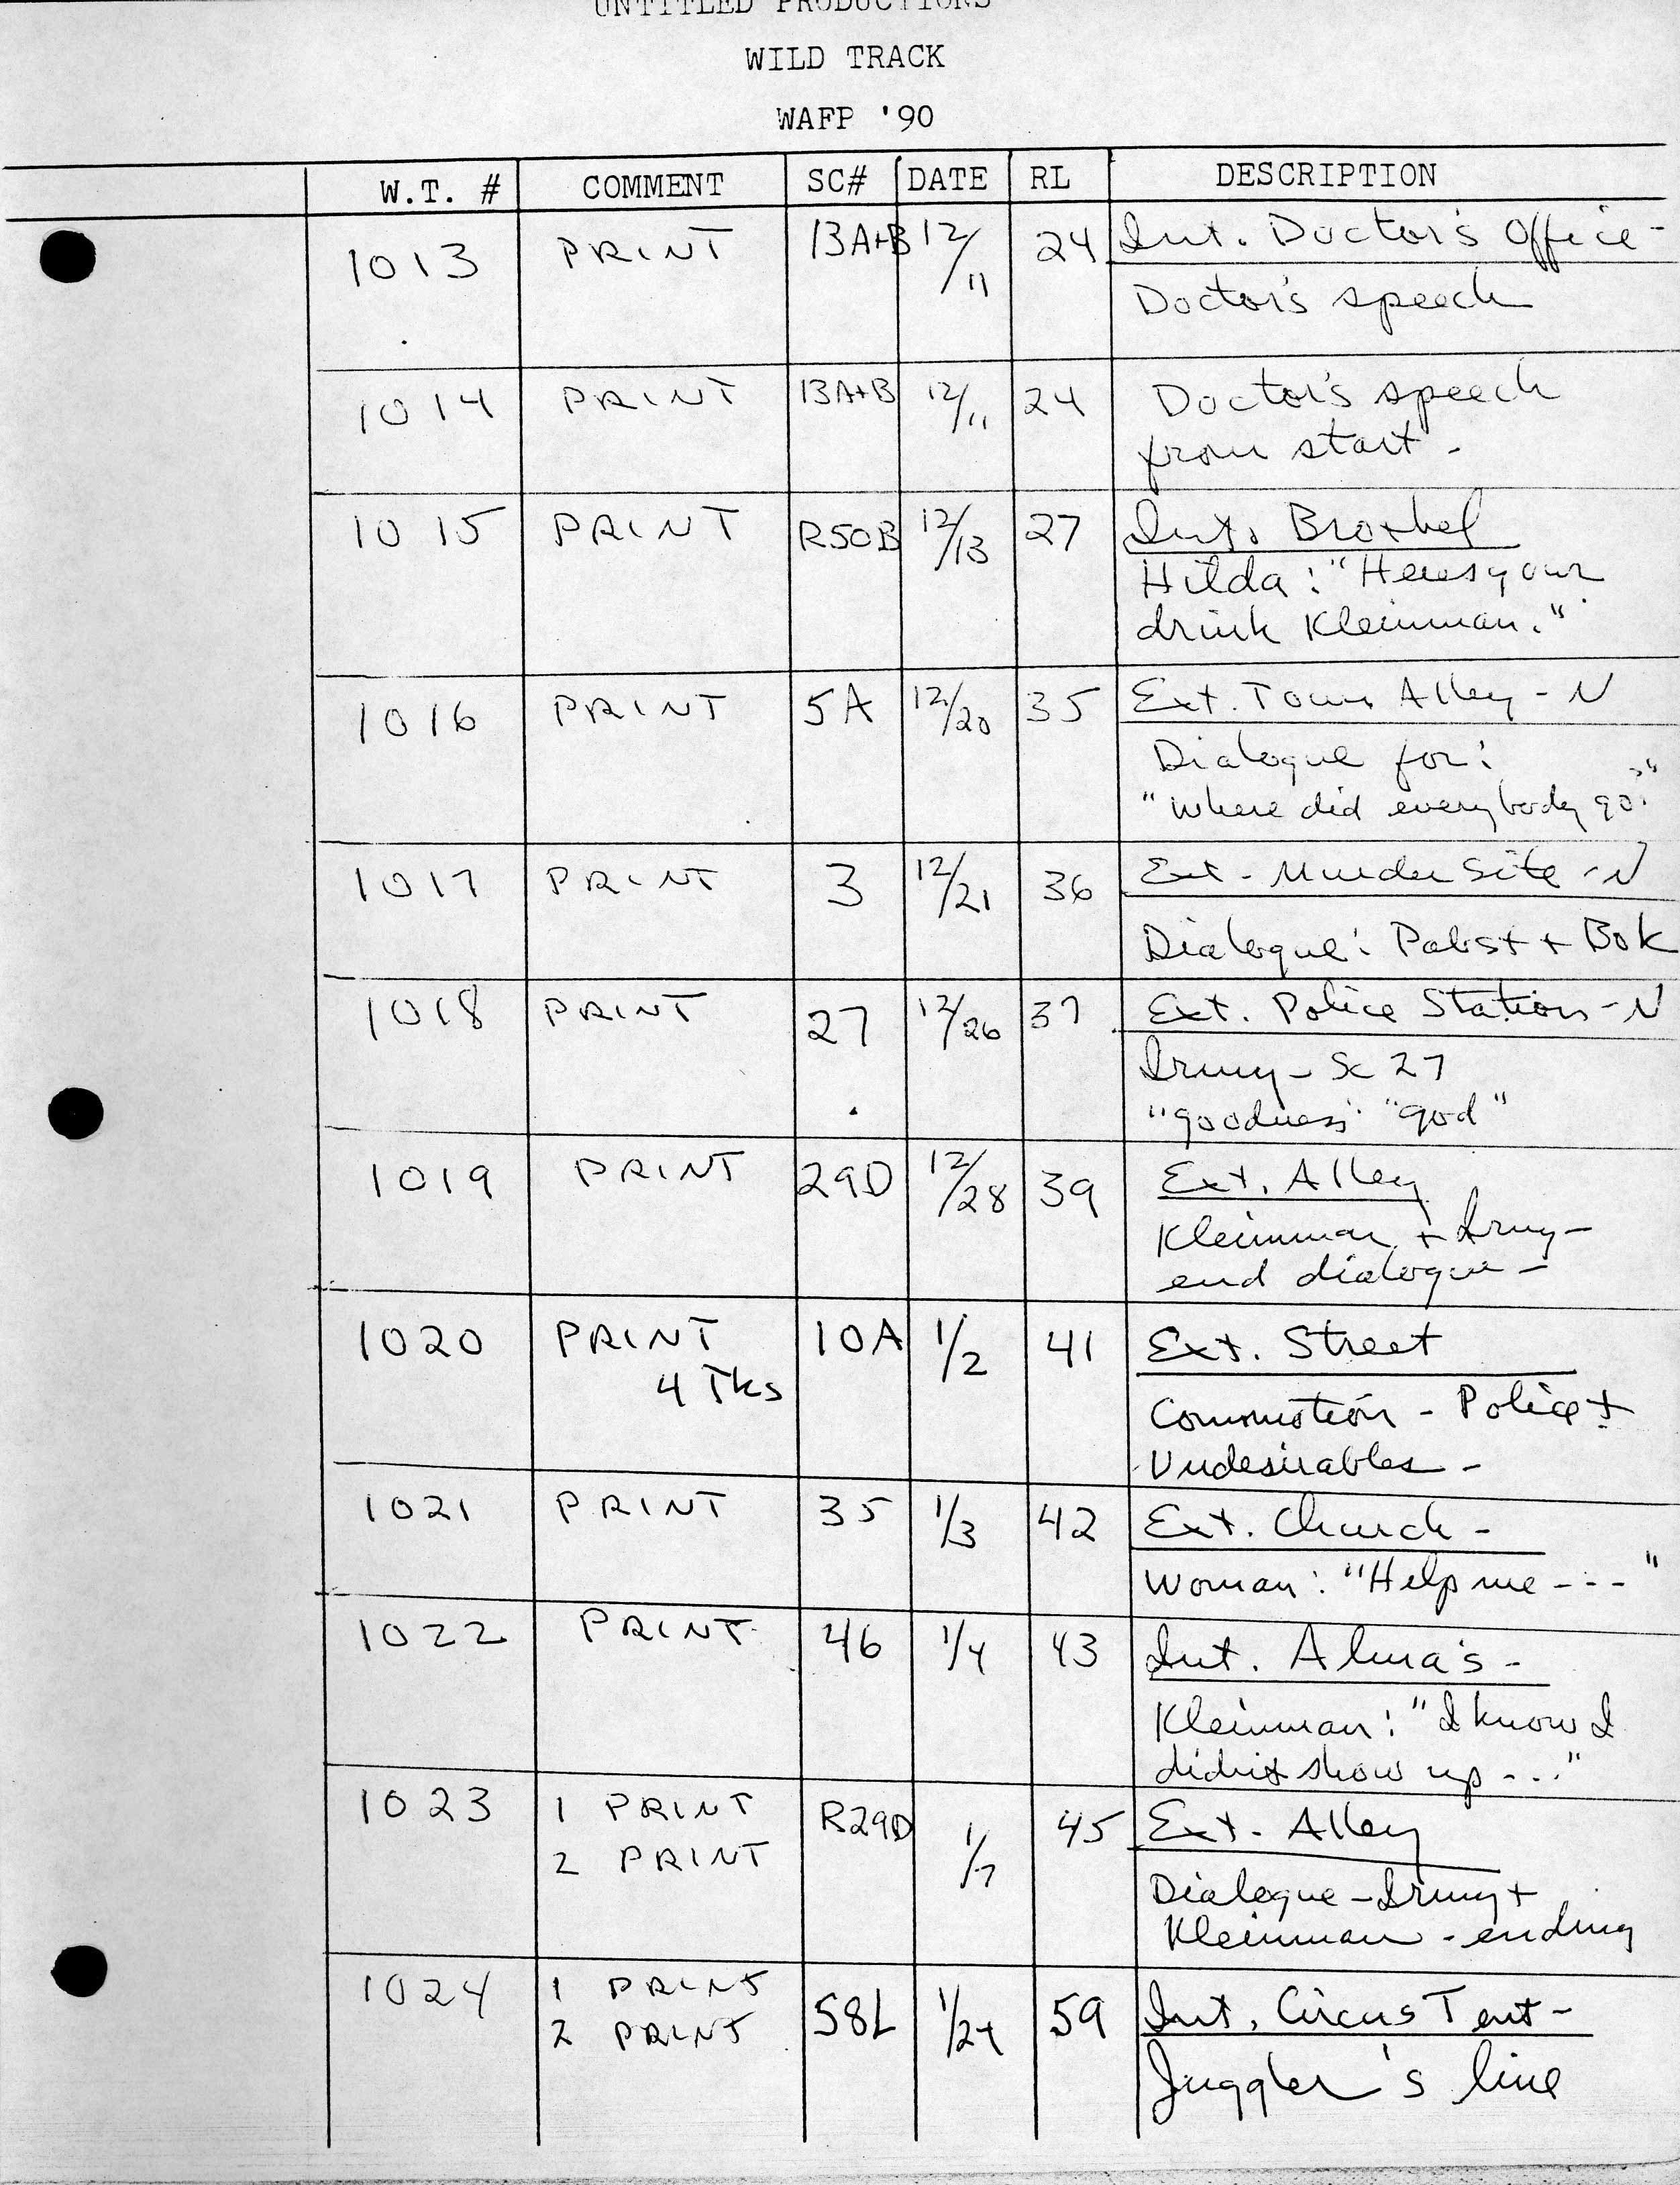 UNTITLED PRODUCTIONS
WILD TRACK
WAFP '90
W.T. # COMMENT SC# DATE RL DESCRIPTION
1013 PRINT 13A+B 12/11 24 Int. Doctor's Office -
Doctor's speech
1014 PRINT 13A+B 12/11 24 Doctor's speech
from start -
1015 PRINT R50B 12/13 27 Int. Brothel
Hilda: "Heres your
drink Kleinman."
1016 PRINT 5A 12/20 35 Ext. Town Alley - N
Dialogue for:
"Where did everybody go?"
1017 PRINT 3 12/21 36 Ext - Murder Site - N
Dialogue: Pabst + Bok
1018 PRINT 27 12/26 37 Ext. Police Station - N
Irmy - Sc 27
"goodness" "god"
1019 PRINT 29D 12/28 39 Ext. Alley
Kleinman + Irmy -
end dialogue -
1020 PRINT 10A 1/2 41 Ext. Street
4 Tks
Commotion - Police +
Undesirables -
1021 PRINT 35 1/3 42 Ext. Church -
Woman: "Help me - - - "
1022 PRINT 46 1/4 43 Int. Alma's -
Kleinman: "I know I
didn't show up - . . "
1023 1 PRINT R29D 1/7 45 Ext. Alley
2 PRINT
Dialogue - Irmy +
Kleinman - ending
1024 1 PRINT 58L 1/24 59 Int. Circus Tent -
2 PRINT
Juggler's line